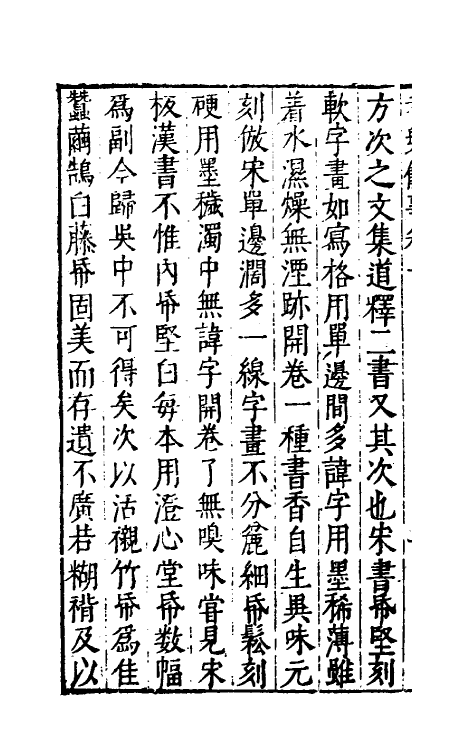 方次之文集道釋二書又其次也宋書帋堅刻
軟字畫如寫格用單邊間多諱字用墨稀薄雖
着水濕燥無湮跡開卷一種書香自生異味元
刻倣宋單邊濶多一線字畫不分麄細帋鬆刻
硬用墨穢濁中無諱字開卷了無嗅味甞見宋
板漢書不惟內帋堅白每本用澄心堂帋数幅
爲副今歸吳中不可得矣次以活襯竹帋爲佳
蠶繭鵠白藤帋固美而存遺不廣若糊褙及以